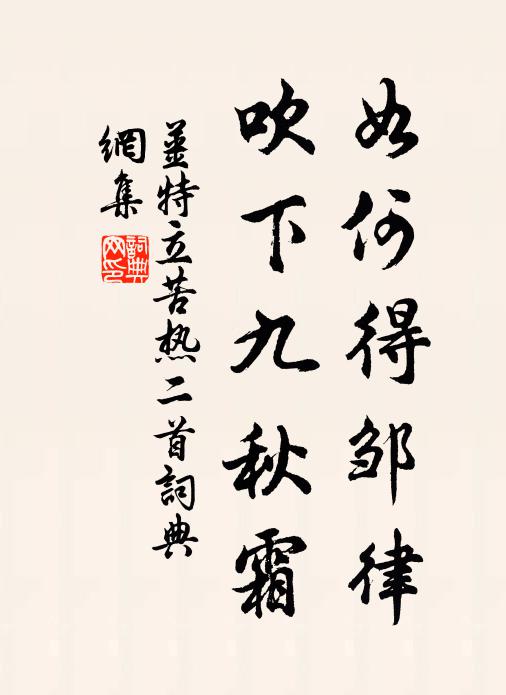 如何得邹律
吹下九秋霜
姜特立苦热二首詞典
網集
詞典网印